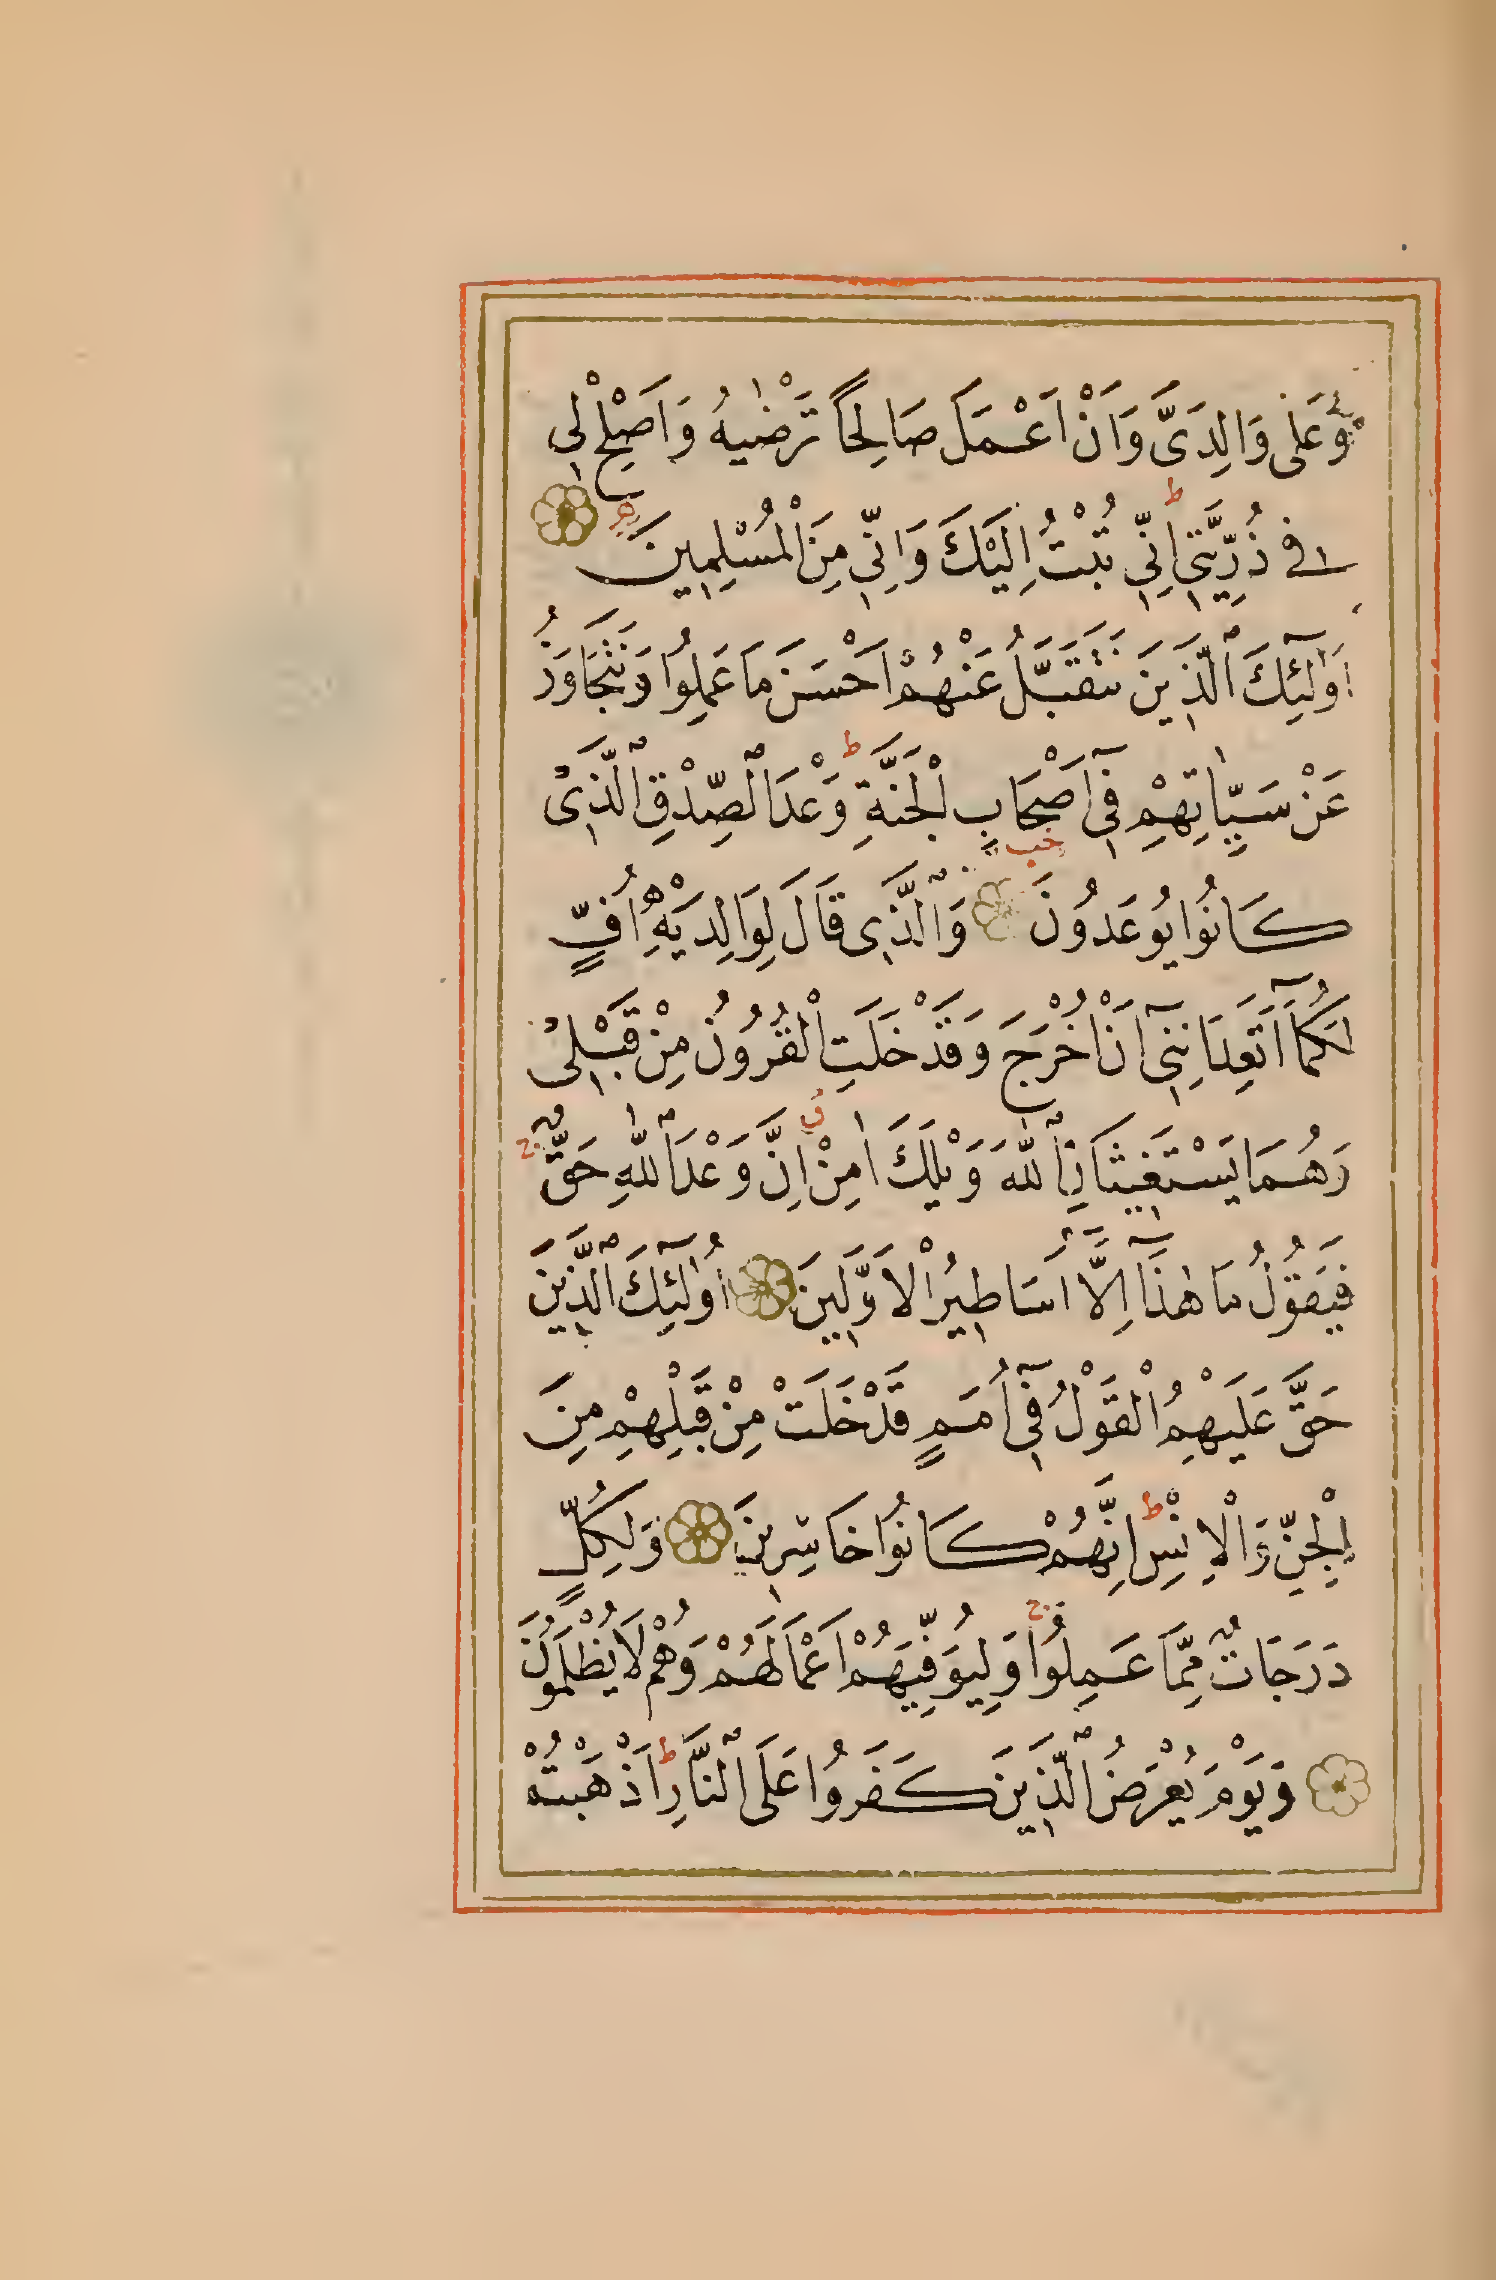 وَعَلٰى وَالِدَىَّ وَاَنْ اَعْمَلَ صَالِحًا تَرْضٰيهُ وَاَصْلِحْ لِى
فِى ذُرِّيَّتِى اِنِّى تُبْتُ اِلَيْكَ وَاِنِّى مِنَ الْمُسْلِمِينَ
اُولٰٓئِكَ الَّذِينَ نَتَقَبَّلُ عَنْهُمْ اَحْسَنَ مَا عَمِلُوا وَنَتَجَاوَزُ
عَنْ سَيِّاٰتِهِمْ فِىٓ اَصْحَابِ الْجَنَّةِ وَعْدَ الصِّدْقِ الَّذِى
كَانُوا يُوعَدُونَ وَالَّذِى قَالَ لِوَالِدَيْهِ اُفٍّ
لَكُمَٓا اَتَعِدَانِنِىٓ اَنْ اُخْرَجَ وَقَدْ خَلَتِ الْقُرُونُ مِنْ قَبْلِى
وَهُمَا يَسْتَغِيثَانِ اللّٰهَ وَيْلَكَ اٰمِنْ اِنَّ وَعْدَ اللّٰهِ حَقٌّ
فَيَقُولُ مَا هٰذَٓا اِلَّٓا اَسَاطِيرُ الْاَوَّلِينَ اُولٰٓئِكَ الَّذِينَ
حَقَّ عَلَيْهِمُ الْقَوْلُ فِىٓ اُمَمٍ قَدْ خَلَتْ مِنْ قَبْلِهِمْ مِنَ
الْجِنِّ وَالْاِنْسِ اِنَّهُمْ كَانُوا خَاسِرِينَ وَلِكُلٍّ
دَرَجَاتٌ مِمَّا عَمِلُوا وَلِيُوَفِّيَهُمْ اَعْمَالَهُمْ وَهُمْ لَا يُظْلَمُونَ
وَيَوْمَ يُعْرَضُ الَّذِينَ كَفَرُوا عَلَى النَّارِ اَذْهَبْتُمْ